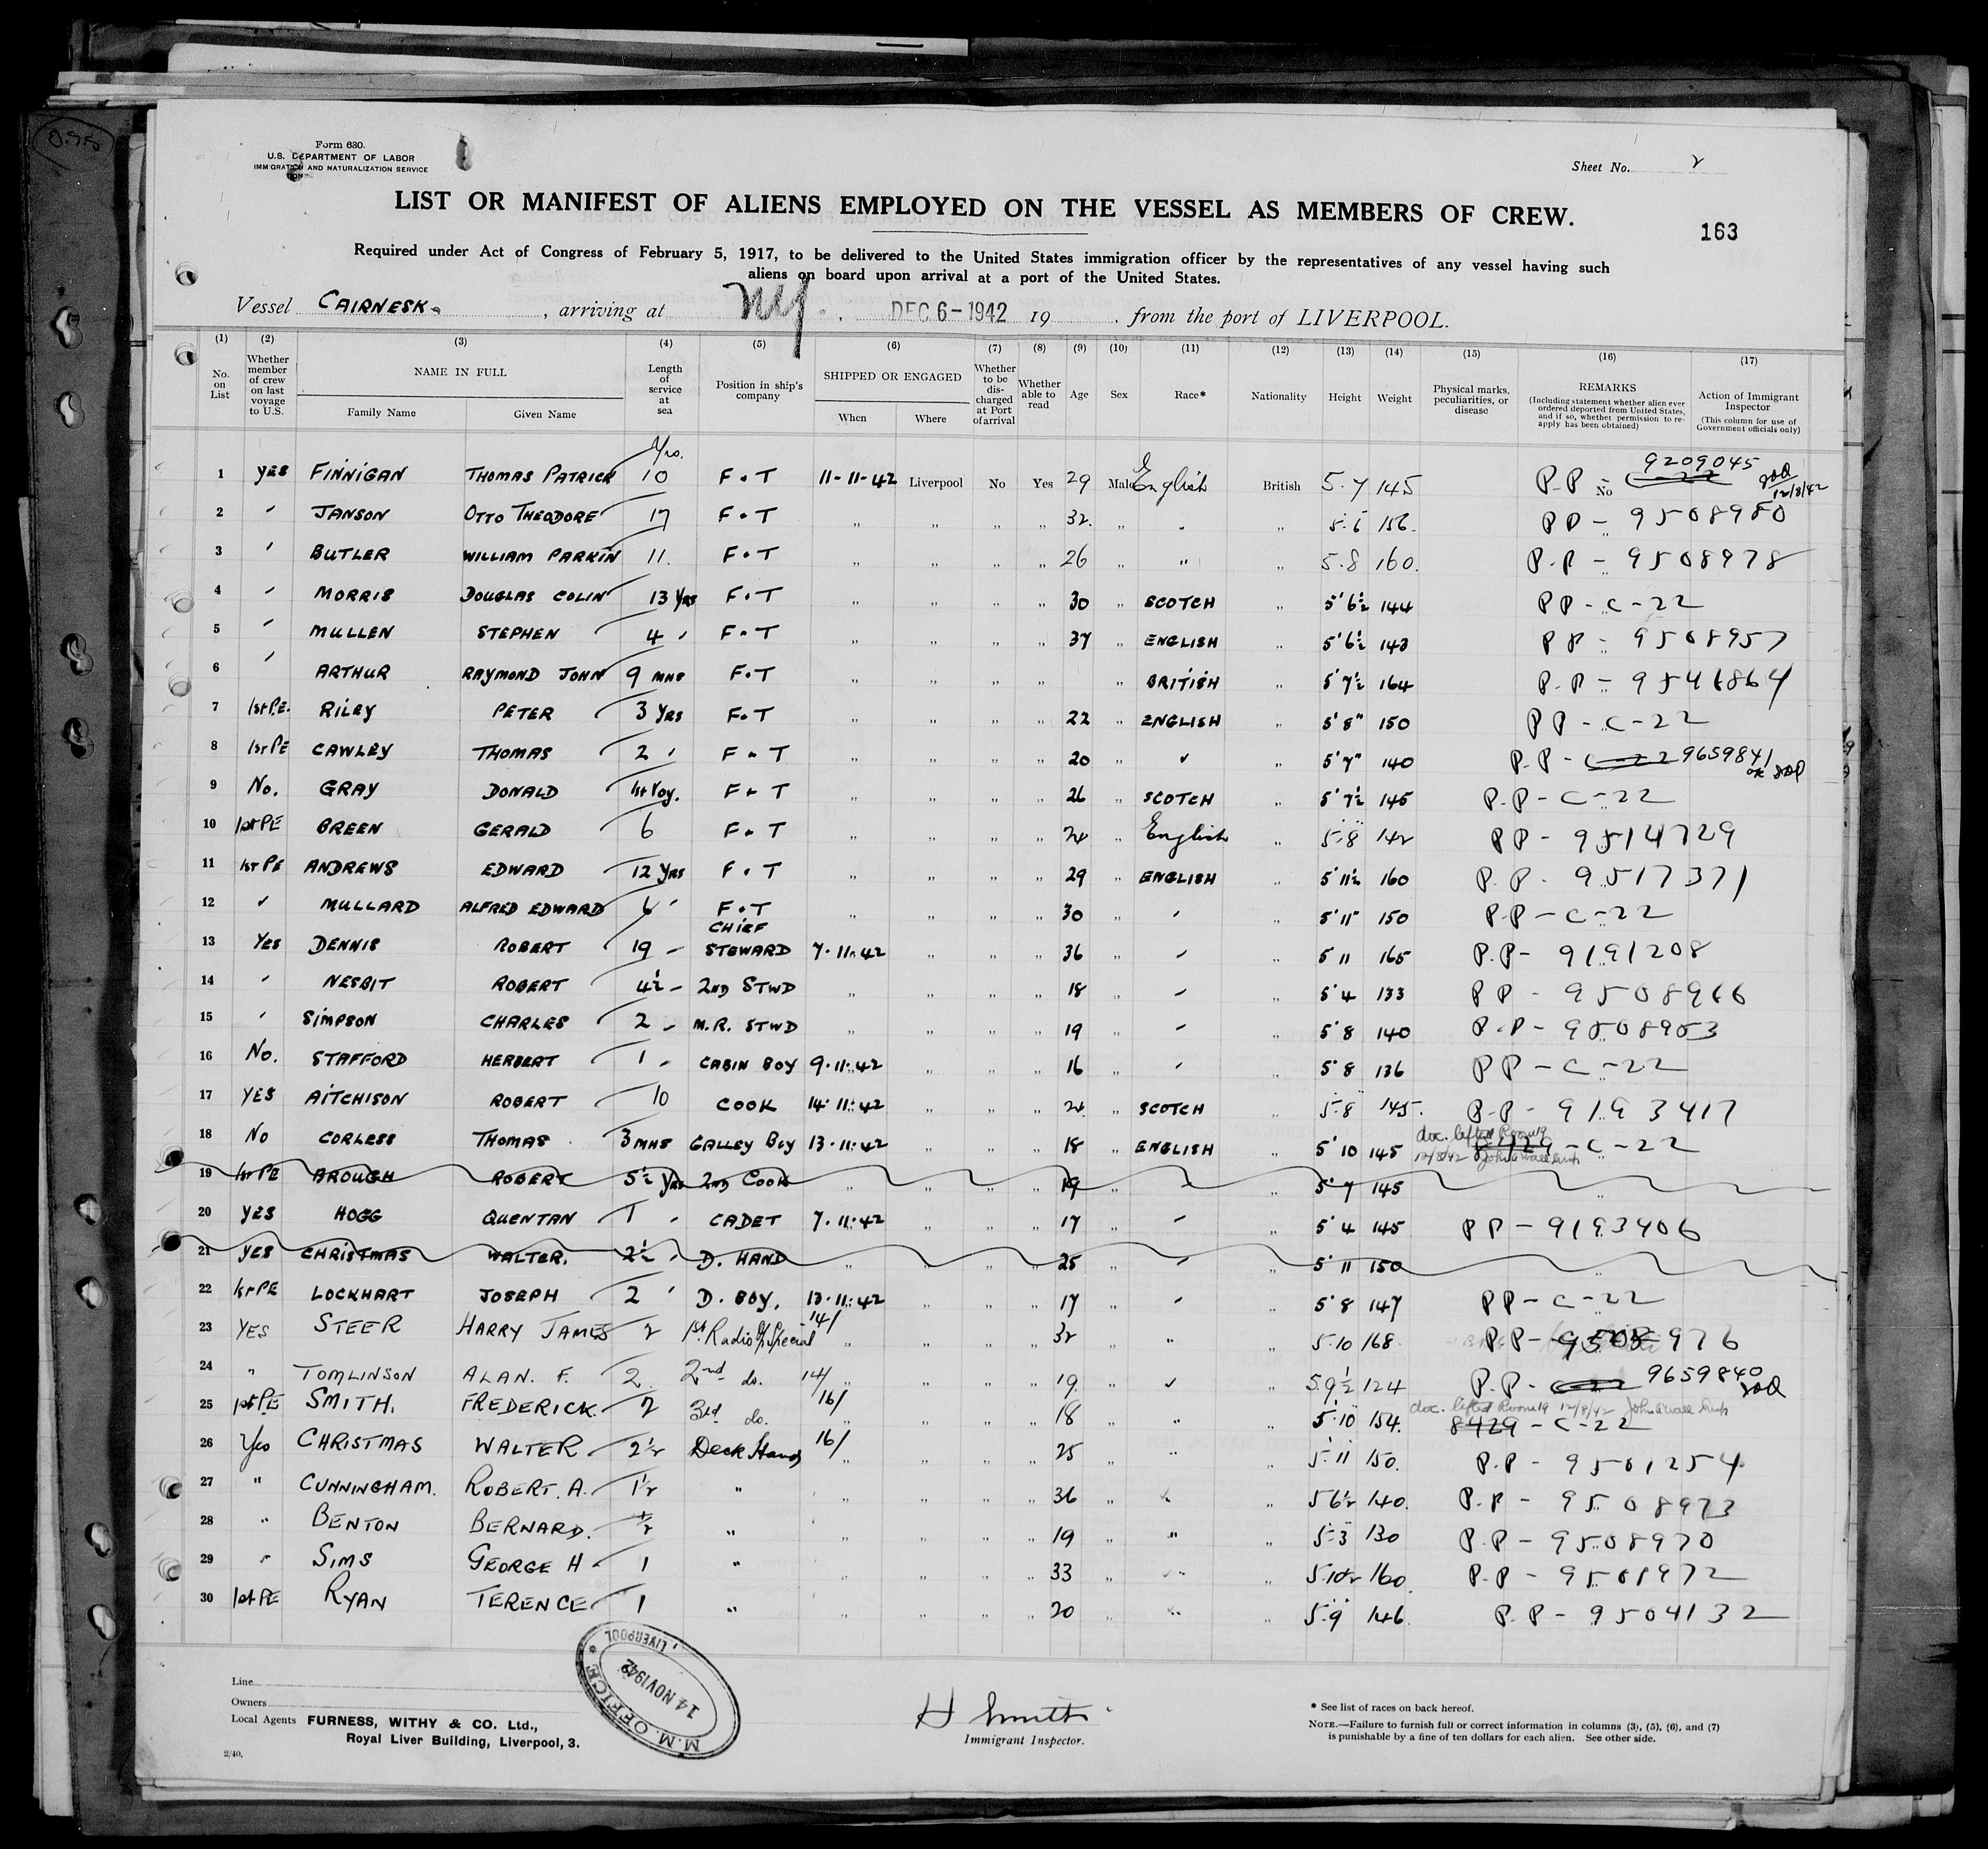 0.75
Form 680.
U.S. DEPARTMENT OF LABOR
IMMIGRATION AND NATURALIZATION SERVICE
Sheet No. 2
LIST OR MANIFEST OF ALIENS EMPLOYED ON THE VESSEL AS MEMBERS OF CREW.
163
Required under Act of Congress of February 5, 1917, to be delivered to the United States immigration officer by the representatives of any vessel having such
aliens on board upon arrival at a port of the United States.
Vessel CAIRNESK , arriving at NY. , DEC 6-1942 19 , from the port of LIVERPOOL.
(1) (2) (3) (4) (5) (6) (7) (8) (9) (10) (11) (12) (13) (14) (15) (16) (17)
No. on List Whether member of crew on last voyage to U.S. NAME IN FULL Family Name Given Name Length of service at sea Position in ship's company SHIPPED OR ENGAGED When Where Whether to be discharged at Port of arrival Whether able to read Age Sex Race* Nationality Height Weight Physical marks, peculiarities, or disease REMARKS (Including statement whether alien ever ordered deported from United States, and if so, whether permission to re-apply has been obtained) Action of Immigrant Inspector (This column for use of Government officials only)
Yrs.
1 yes FINNIGAN THOMAS PATRICK 10 F.T 11-11-42 Liverpool No Yes 29 Male English British 5.7 145 P.P - No C-22 9209045 12/8/42
2 " JANSON OTTO THEODORE 17 F.T " " " " 32 " " " 5.6 156. PP - 9508980
3 " BUTLER WILLIAM PARKIN 11. F.T " " " " 26 " " " 5.8 160. P.P - 9508978
4 " MORRIS DOUGLAS COLIN 13 YRS F.T " " " " 30 " SCOTCH " 5'6½ 144 PP - C-22
5 " MULLEN STEPHEN 4 " F.T " " " " 37 " ENGLISH " 5'6½ 143 PP - 9508957
6 " ARTHUR RAYMOND JOHN 9 MNS F.T " " " " " BRITISH " 5'7½ 164 P.P - 9546864
7 1st P.E. RILEY PETER 3 YRS F.T " " " " 22 " ENGLISH " 5'8" 150 PP - C-22
8 1st PE CAWLEY THOMAS 2 " F.T " " " " 20 " " " 5'7" 140 P.P - C-22 9659841
ok
9 No. GRAY DONALD 1st Voy. F.T " " " " 26 " SCOTCH " 5'7½ 145 P.P - C-22
10 1st PE BREEN GERALD 6 F.T " " " " 24 " English " 5.8 142 PP - 9514729
11 1st PE ANDREWS EDWARD 12 YRS F.T " " " " 29 " ENGLISH " 5'11½ 160 P.P. 9517371
12 " MULLARD ALFRED EDWARD 6 " F.T " " " " 30 " " " 5'11" 150 P.P - C-22
13 Yes DENNIS ROBERT 19 - CHIEF STEWARD 7.11.42 " " " 36 " " " 5 11 165 P.P - 9191208
14 " NESBIT ROBERT 4½ - 2ND STWD " " " " 18 " " " 5'4 133 PP - 9508966
15 " SIMPSON CHARLES 2 - M.R. STWD " " " " 19 " " " 5'8 140 P.P - 9508953
16 No. STAFFORD HERBERT 1 - CABIN BOY 9.11.42 " " " 16 " " " 5'8 136 PP - C-22
17 YES AITCHISON ROBERT 10 COOK 14.11.42 " " " 24 " SCOTCH " 5.8 145. P.P - 9193417
18 No CORLESS THOMAS 3 MNS GALLEY BOY 13.11.42 " " " 18 " ENGLISH " 5'10 145 8429 - C-22
doc. lifted Room 19
12/8/42 John G Wall Insp
19 1st PE AROUGH ROBERT 5½ YRS 2ND COOK " " " " 19 " " " 5'7 145
20 YES HOGG QUENTAN 1 " CADET 7.11.42 " " " 17 " " " 5'4 145 PP - 9193906
21 YES CHRISTMAS WALTER. 2½ " D. HAND " " " " 25 " " " 5 11 150
22 1st PE LOCKHART JOSEPH 2 " D. BOY. 13.11.42 " " " 17 " " " 5'8 147 PP - C-22
23 YES STEER HARRY JAMES 2 1st Radio Off Special 14/ " " " " 32 " " " 5.10 168. PP - 9508976
24 " TOMLINSON ALAN. F. 2 2nd do. 14/ " " " " 19. " " " 5.9½ 124 P.P - C-22 9659840
25 1st PE SMITH. FREDERICK. 2 3rd do. 16/ " " " " 18 " " " 5.10 154. 8429 - C-22
doc. lifted Room 19 12/8/42 John G Wall Insp
26 Yes CHRISTMAS WALTER 2½ Deck Hand 16/ " " " " 25 " " " 5.11 150. P.P - 9501254
27 " CUNNINGHAM. ROBERT. A. 1½ " " " " " 36 " " " 5 6½ 140. P.P - 9508973
28 " BENTON BERNARD. ½ " " " " " 19 " " " 5.3 130 P.P - 9508970
29 " SIMS GEORGE H 1 " " " " " 33 " " " 5.10½ 160. P.P - 9501972
30 1st PE RYAN TERENCE 1 " " " " " 20 " " " 5.9 146. P.P - 9504132
Line
Owners
Local Agents FURNESS, WITHY & CO. Ltd.,
Royal Liver Building, Liverpool, 3.
2/40.
M.M. OFFICE * LIVERPOOL
14 NOV 1942
H Smith
Immigrant Inspector.
* See list of races on back hereof.
NOTE.—Failure to furnish full or correct information in columns (3), (5), (6), and (7)
is punishable by a fine of ten dollars for each alien. See other side.